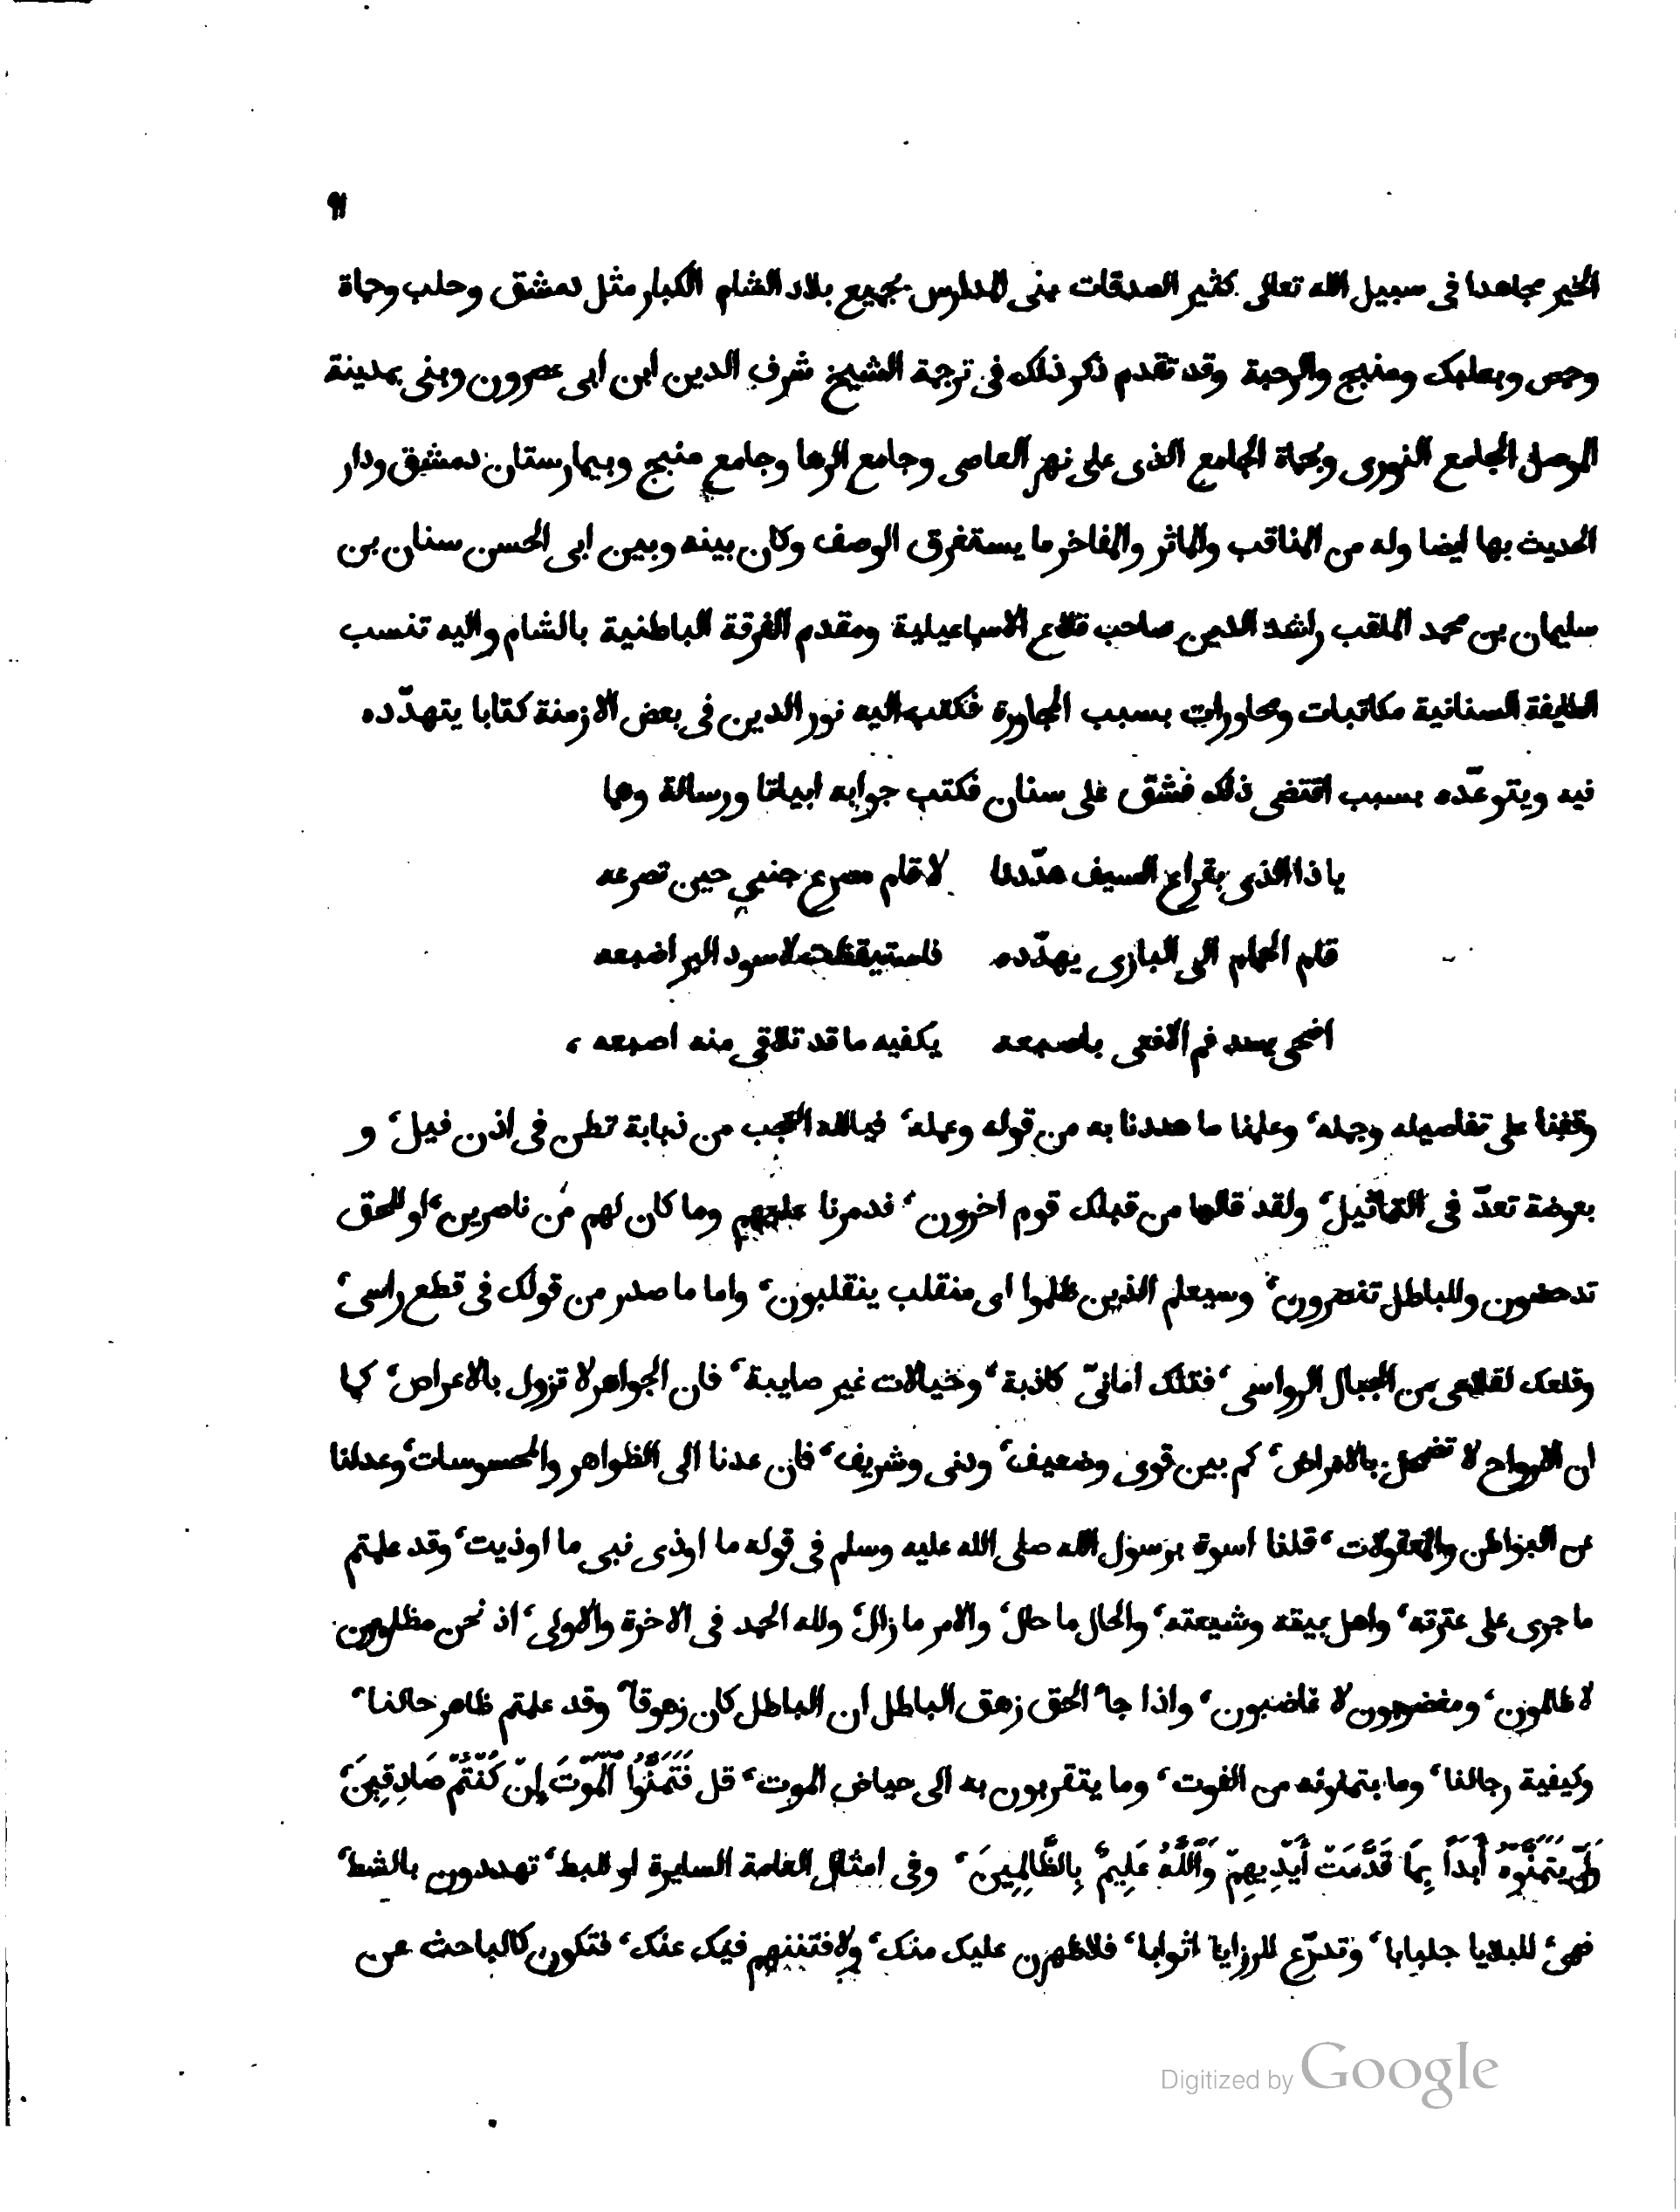 ٩١
الخير مجاهدا فى سبيل الله تعالى كثير الصدقات بنى المدارس بجميع بلاد الشام الكبار مثل دمشق وحلب وحماة
وحمص وبعلبك ومنبج والرحبة وقد تقدم ذكر ذلك فى ترجمة الشيخ شرف الدين ابن ابى عصرون وبنى بمدينة
الموصل الجامع النورى وبحماة الجامع الذى على نهر العاصى وجامع الرها وجامع منبج وبيمارستان دمشق ودار
الحديث بها ايضا وله من المناقب والماثر والمفاخر ما يستغرق الوصف وكان بينه وبين ابى الحسن سنان بن
سليمان بن محمد الملقب راشد الدين صاحب قلاع الاسماعيلية ومقدم الفرقة الباطنية بالشام واليه تنسب
الطايفة السنانية مكاتبات ومحاورات بسبب المجاورة فكتب اليه نور الدين فى بعض الازمنة كتابا يتهدّده
فيه ويتوعّده بسبب اقتضى ذلك فشق على سنان فكتب جوابه ابياتا ورسالة وهما
يا ذا الذى بقراع السيف هدّدنا لا قام مصرع جنبي حين تصرعه
قام الحمام الى البازى يهدّده فاستيقظت لاسود البر اضبعه
اضحى يسد فم الافعى باصبعه يكفيه ما قد تلاقى منه اصبعه ،
وقفنا على تفاصيله وجمله، وعلمنا ما هددنا به من قوله وعمله، فيالله العجب من ذبابة تطن فى اذن فيل، و
بعوضة تعدّ فى التماثيل، ولقد قالها من قبلك قوم اخرون، فدمرنا عليهم وما كان لهم من ناصرين، او للحق
تدحضون وللباطل تنصرون، وسيعلم الذين ظلموا اى منقلب ينقلبون، واما ما صدر من قولك فى قطع راسى،
وقلعك لقلاعى من الجبال الرواسى، فتلك امانىّ كاذبة، وخيالات غير صايبة، فان الجواهر لا تزول بالاعراض، كما
ان الارواح لا تضمحل بالامراض، كم بين قوى وضعيف، ودنى وشريف، فان عدنا الى الظواهر والمحسوسات، وعدلنا
عن البواطن والمعقولات، قلنا اسوة برسول الله صلى الله عليه وسلم فى قوله ما اوذى نبى ما اوذيت، وقد علمتم
ما جرى على عترته، واهل بيته وشيعته، والحال ما حال، والامر ما زال، ولله الحمد فى الاخرة والاولى، اذ نحن مظلومون
لا ظالمون، ومغضوبون لا غاضبون، واذا جاء الحق زهق الباطل ان الباطل كان زهوقا، وقد علمتم ظاهر حالنا،
وكيفية رجالنا، وما يتمنونه من الفوت، وما يتقربون به الى حياض الموت، قل فَتَمَنَّوُا الْمَوْتَ إِنْ كُنْتُمْ صَادِقِينَ،
وَلَنْ يَتَمَنَّوْهُ أَبَدًا بِمَا قَدَّمَتْ أَيْدِيهِمْ وَاللَّهُ عَلِيمٌ بِالظَّالِمِينَ، وفى امثال العامة السايرة او للبط، تهددون بالشط،
فهىء للبلايا جلبابا، وتدرّع للرزايا اثوابا، فلاظهرن عليك منك، ولافتننهم فيك عنك، فتكون كالباحث عن
Digitized by Google